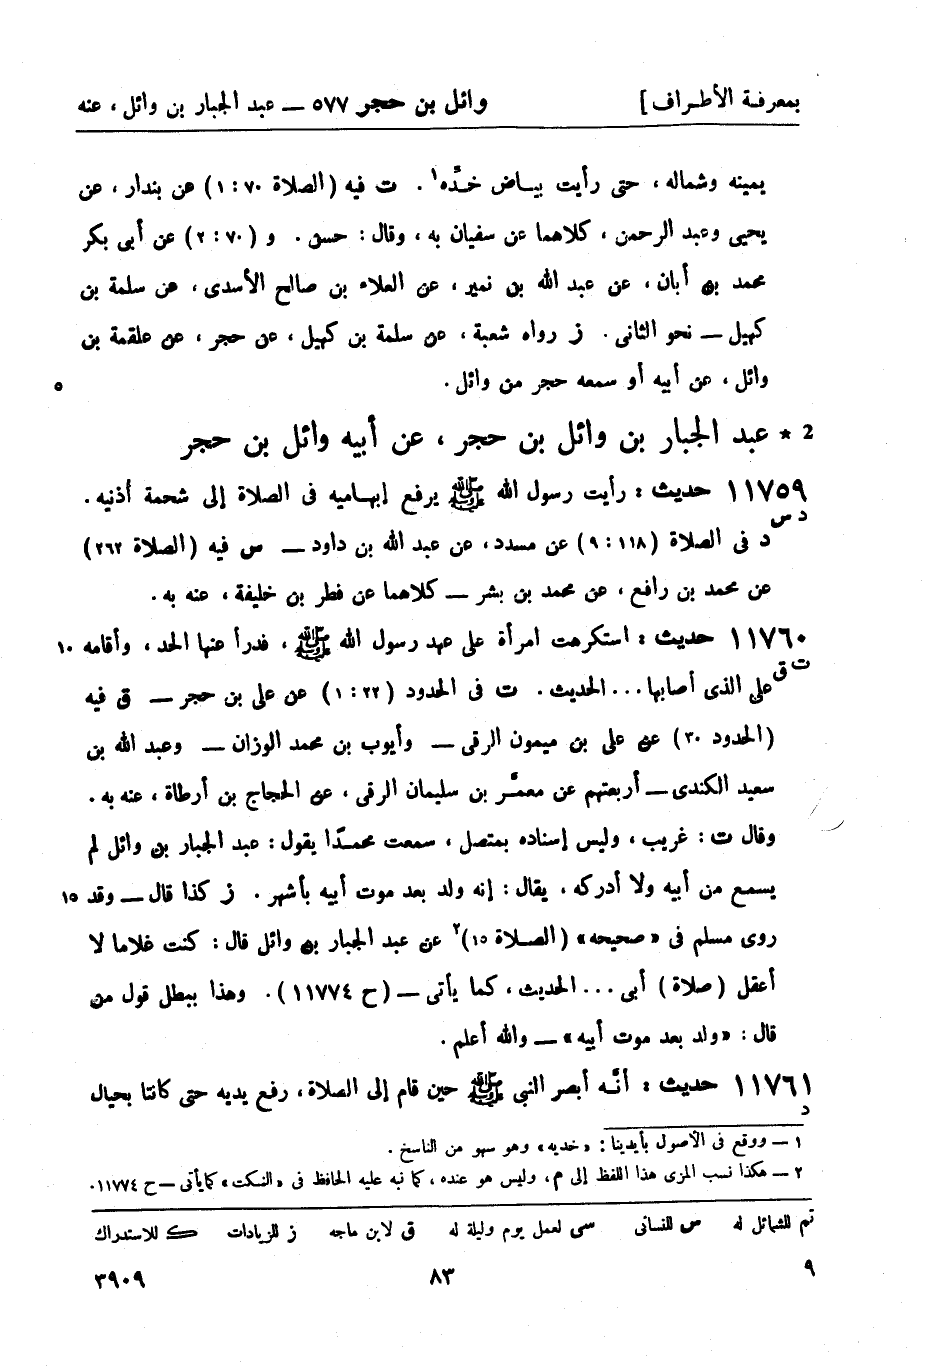 بمعرفة الأطراف ] وائل بن حجر ٥٧٧ — عبد الجبار بن وائل ، عنه
يمينه وشماله ، حتى رأيت بيـاض خدّه١ . ت فيه (الصلاة ٧٠ : ١) عن بندار ، عن
يحيى وعبد الرحمن ، كلاهما عن سفيان به ، وقال : حسن . و (٧٠ : ٢) عن أبى بكر
محمد بن أبان ، عن عبد الله بن نمير ، عن العلاء بن صالح الأسدى ، عن سلمة بن
كهيل — نحو الثانى . ز رواه شعبة ، عن سلمة بن كهيل ، عن حجر ، عن علقمة بن
وائل ، عن أبيه أو سمعه حجر من وائل . ٥
2 * عبد الجبار بن وائل بن حجر ، عن أبيه وائل بن حجر
١١٧٥٩ حديث : رأيت رسول الله ﷺ يرفع إبهـاميه فى الصلاة إلى شحمة أذنيه .
د س
د فى الصلاة (١١٨ : ٩) عن مسدد ، عن عبد الله بن داود — س فيه (الصلاة ٢٦٢)
عن محمد بن رافع ، عن محمد بن بشر — كلاهما عن فطر بن خليفة ، عنه به .
١١٧٦٠ حديث : استكرهت امرأة على عهد رسول الله ﷺ ، فدرأ عنها الحد ، وأقامه ١٠
ت ق
على الذى أصابها ... الحديث . ت فى الحدود (٢٢ : ١) عن على بن حجر — ق فيه
(الحدود ٣٠) عن على بن ميمون الرقى — وأيوب بن محمد الوزان — وعبد الله بن
سعيد الكندى — أربعتهم عن معمّر بن سليمان الرقى ، عن الحجاج بن أرطاة ، عنه به .
وقال ت : غريب ، وليس إسناده بمتصل ، سمعت محمدًا يقول : عبد الجبار بن وائل لم
يسمع من أبيه ولا أدركه . يقال : إنه ولد بعد موت أبيه بأشهر . ز كذا قال — وقد ١٥
روى مسلم فى «صحيحه» (الصـلاة ١٥)٢ عن عبد الجبار بن وائل قال : كنت غلاما لا
أعقل (صلاة) أبى ... الحديث ، كما يأتى — (ح ١١٧٧٤) . وهذا يبطل قول من
قال : «ولد بعد موت أبيه» — والله أعلم .
١١٧٦١ حديث : أنّه أبصر النبى ﷺ حين قام إلى الصلاة ، رفع يديه حتى كانتا بحيال
د
١ — ووقع فى الأصول بأيدينا : «خديه» وهو سهو من الناسخ .
٢ — هكذا نسب المزى هذا اللفظ إلى م ، وليس هو عنده ، كما نبه عليه الحافظ فى «النكت» كما يأتى — ح ١١٧٧٤ .
تم للشمائل له س للنسائى سى لعمل يوم وليلة له ق لابن ماجه ز للزيادات ك للاستدراك
٩ ٨٣ ٣٩٠٩